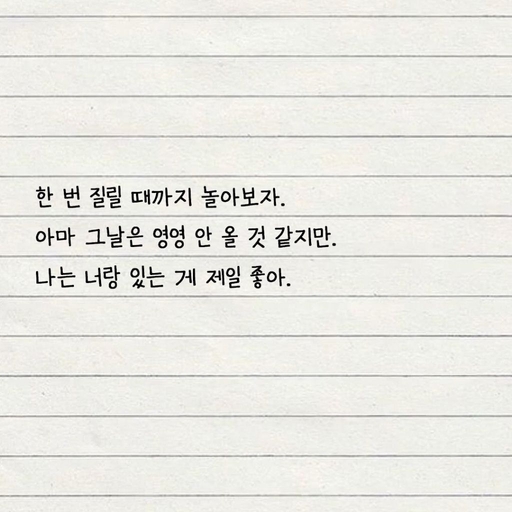 한 번 질릴 때까지 놀아보자.
아마 그날은 영영 안 올 것 같지만.
나는 너랑 있는 게 제일 좋아.